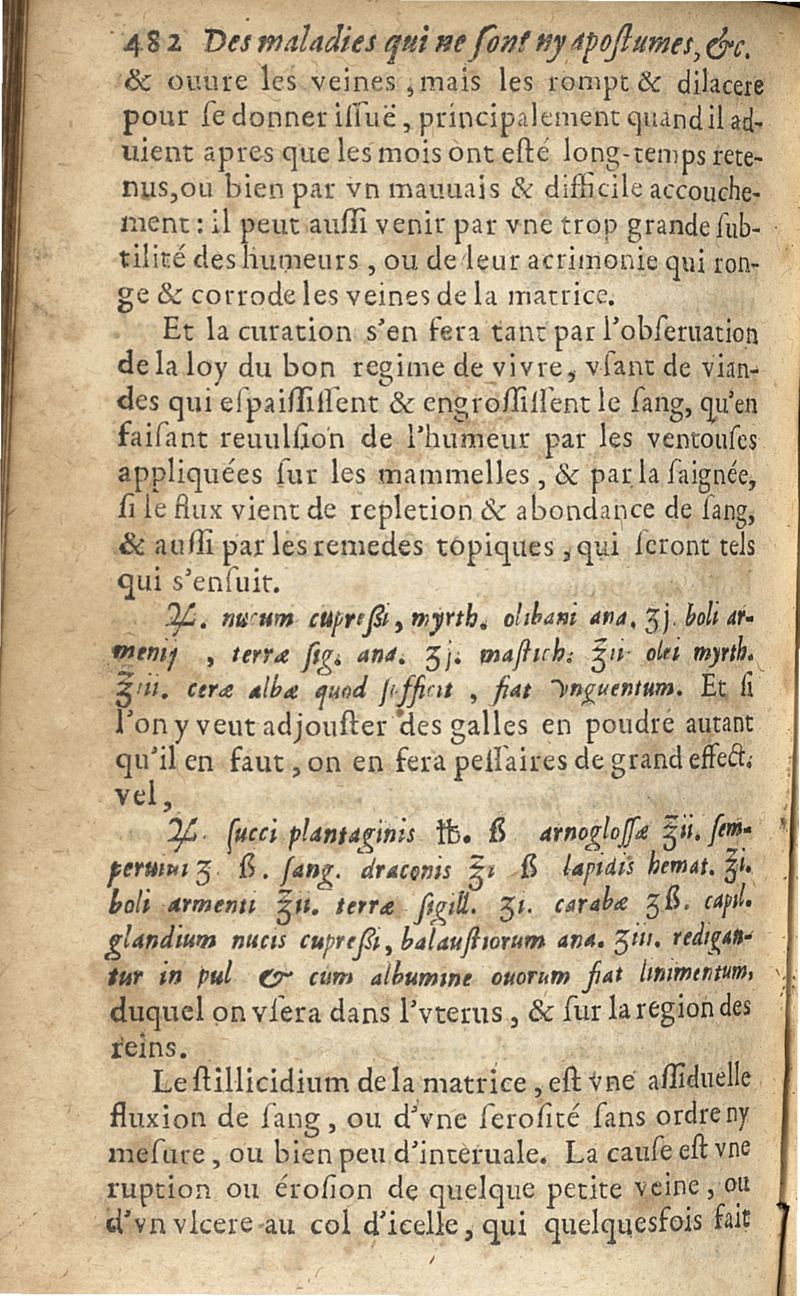 482 Des maladies qui ne ſont ny apoſtumes, &c.
& ouure les veines, mais les rompt & dilacere
pour ſe donner iſſuë, principalement quand il ad-
uient apres que les mois ont eſté long-temps rete-
nus, ou bien par vn mauuais & difficile accouche-
ment : il peut auſſi venir par vne trop grande ſub-
tilité des humeurs, ou de leur acrimonie qui ron-
ge & corrode les veines de la matrice.
Et la curation s'en fera tant par l'obſeruation
de la loy du bon regime de vivre, vſant de vian-
des qui eſpaiſſiſſent & engroſſiſſent le ſang, qu'en
faiſant reuulſion de l'humeur par les ventouſes
appliquées ſur les mammelles, & par la ſaignée,
ſi le flux vient de repletion & abondance de ſang,
& auſſi par les remedes topiques, qui ſeront tels
qui s'enſuit.
℞. nucum cupreßi, myrth. olibani ana. ʒj. boli ar-
menij , terræ ſig. ana. ʒj. maſtich. ℥ii olei myrth.
℥iii. ceræ albæ quod ſufficit , fiat vnguentum. Et ſi
l'on y veut adjouſter des galles en poudre autant
qu'il en faut, on en fera peſſaires de grand effect.
vel,
℞. ſucci plantaginis ℔. ß arnogloſſæ ℥ii. ſem-
peruiui ʒ ß. ſang. draconis ℥i ß lapidis hemat. ℥i.
boli armenii ℥ii. terræ ſigill. ʒi. carabæ ʒß. capil.
glandium nucis cupreßi, balauſtiorum ana. ʒiii. redigan-
tur in pul & cum albumine ouorum fiat linimentum,
duquel on vſera dans l'vterus, & ſur la region des
reins.
Le ſtillicidium de la matrice, eſt vne aſſiduelle
fluxion de ſang, ou d'vne ſeroſité ſans ordre ny
meſure, ou bien peu d'interuale. La cauſe eſt vne
ruption ou éroſion de quelque petite veine, ou
d'vn vlcere au col d'icelle, qui quelquesfois fait